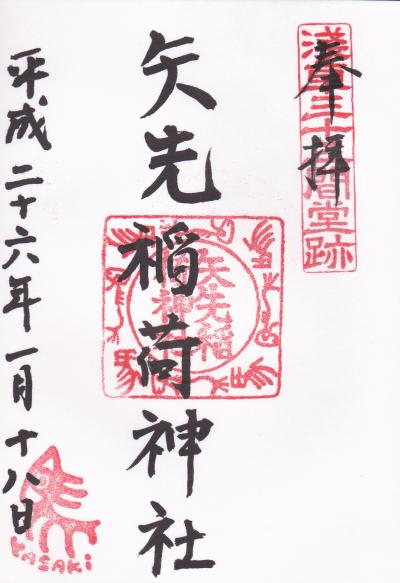 奉拝
浅草三十三間堂跡
矢先稲荷神社
矢先稲
平成二十六年一月十八日
YASAKI